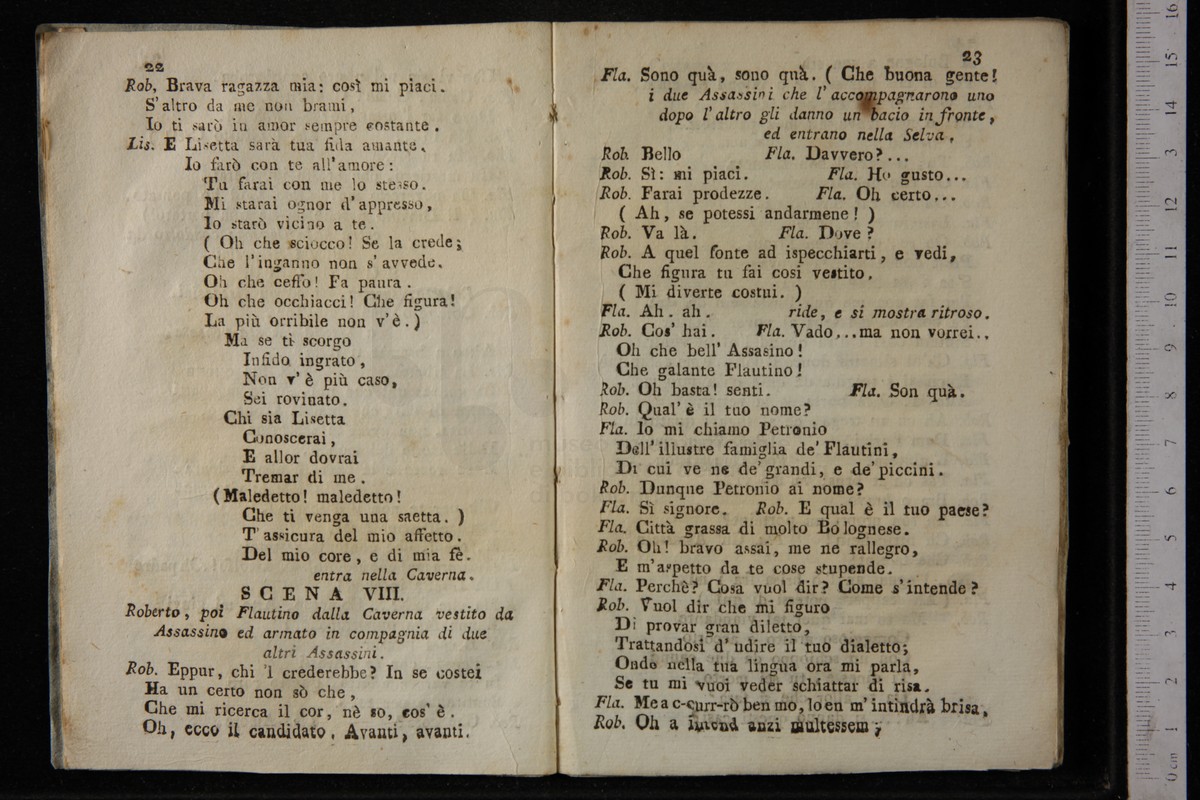 22
Rob, Brava ragazza mia: così mi piaci.
S'altro da me non brami,
Io ti sarò in amor sempre costante.
Lis. E Lisetta sarà tua fida amante.
Io farò con te all'amore:
Tu farai con me lo stesso.
Mi starai ognor d'appresso,
Io starò vicino a te.
( Oh che sciocco! Se la crede;
Che l'inganno non s'avvede.
Oh che ceffo! Fa paura.
Oh che occhiacci! Che figura!
La più orribile non v'è.)
Ma se ti scorgo
Infido ingrato,
Non v'è più caso,
Sei rovinato.
Chi sia Lisetta
Conoscerai,
E allor dovrai
Tremar di me.
(Maledetto! maledetto!
Che ti venga una saetta. )
T'assicura del mio affetto.
Del mio core, e di mia fè.
entra nella Caverna.
SCENA VIII.
Roberto, poi Flautino dalla Caverna vestito da
Assassino ed armato in compagnia di due
altri Assassini.
Rob. Eppur, chi 'l crederebbe? In se costei
Ha un certo non sò che,
Che mi ricerca il cor, nè so, cos'è.
Oh, ecco il candidato. Avanti, avanti.
23
Fla. Sono quà, sono quà. ( Che buona gente!
i due Assassini che l'accompagnarono uno
dopo l'altro gli danno un bacio in fronte,
ed entrano nella Selva.
Rob. Bello Fla. Davvero?...
Rob. Sì: mi piaci. Fla. Ho gusto...
Rob. Farai prodezze. Fla. Oh certo...
( Ah, se potessi andarmene! )
Rob. Va là. Fla. Dove?
Rob. A quel fonte ad ispecchiarti, e vedi,
Che figura tu fai così vestito.
( Mi diverte costui. )
Fla. Ah. ah. ride, e si mostra ritroso.
Rob. Cos' hai. Fla. Vado...ma non vorrei..
Oh che bell' Assasino!
Che galante Flautino!
Rob. Oh basta! senti. Fla. Son quà.
Rob. Qual' è il tuo nome?
Fla. Io mi chiamo Petronio
Dell'illustre famiglia de' Flautini,
Di cui ve ne de' grandi, e de' piccini.
Rob. Dunque Petronio ai nome?
Fla. Sì signore. Rob. E qual è il tuo paese?
Fla. Città grassa di molto Bolognese.
Rob. Oh! bravo assai, me ne rallegro,
E m'aspetto da te cose stupende.
Fla. Perchê? Cosa vuol dir? Come s'intende?
Rob. Vuol dir che mi figuro
Di provar gran diletto,
Trattandosi d'udire il tuo dialetto;
Onde nella tua lingua ora mi parla,
Se tu mi vuoi veder schiattar di risa.
Fla. Mea c-curr-rò ben mo, lo en m'intindrà brisa.
Rob. Oh a intend anzi multessem;